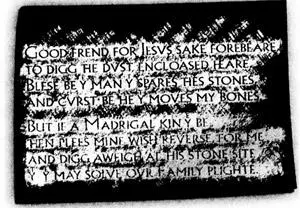 GOOD FREND FOR JESVS SAKE FOREBEARE
TO DIGG HE DVST ENCLOASED HEARE
BLESE BE Y MAN Y SPARES HES STONES
AND CVRST BE HE Y MOVES MY BONES
BUT IF A MADRIGAL KIN Y BE
THEN PLEES MINE WISH REVERSE FOR ME
AND DIGG AWEIGH AT HIS STONE SITE
Y Y MAY SOLVE OVR FAMILY PLIGHTE